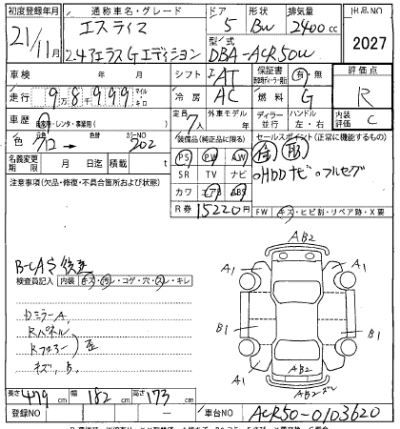 初度登録年月 通称車名・グレード ドア 形状 排気量 出品NO
21/11月 エスティマ 5 BW 2400cc 2027
2.4アエラスGエディション 型式 DBA-ACR50W
車検 年 月 シフト AT 保証書 有・無 評価点
走行 98999 マイル キロ 冷房 AC 燃料 G R
車歴 自家用・レンタ・事業用( ) 定員 7人 外車モデル 年 ディーラー 並行 ハンドル 左・右 内装評価 C
色 → 色替 カラーNO 202 装備品(純正品に限る) セールスポイント(正常に機能するもの)
名義変更期限 月 日迄 積載 t PS PW AW
注意事項(欠品・修復・不具合箇所および状態) SR TV ナビ HDDナビ フルセグ
カワ エアB ABS
R券 15220円 FW キズ・ヒビ割・リペア跡・X要
検査員記入 内装 キズ・汚レ・コゲ・穴・スレ・キレ
AB2
A1 A1
DミラーA
Rパネル
B1 B1
A1 A1
AB2
長さ 479cm 幅 182cm 高さ 173cm
登録NO 車台NO ACR50-0103620